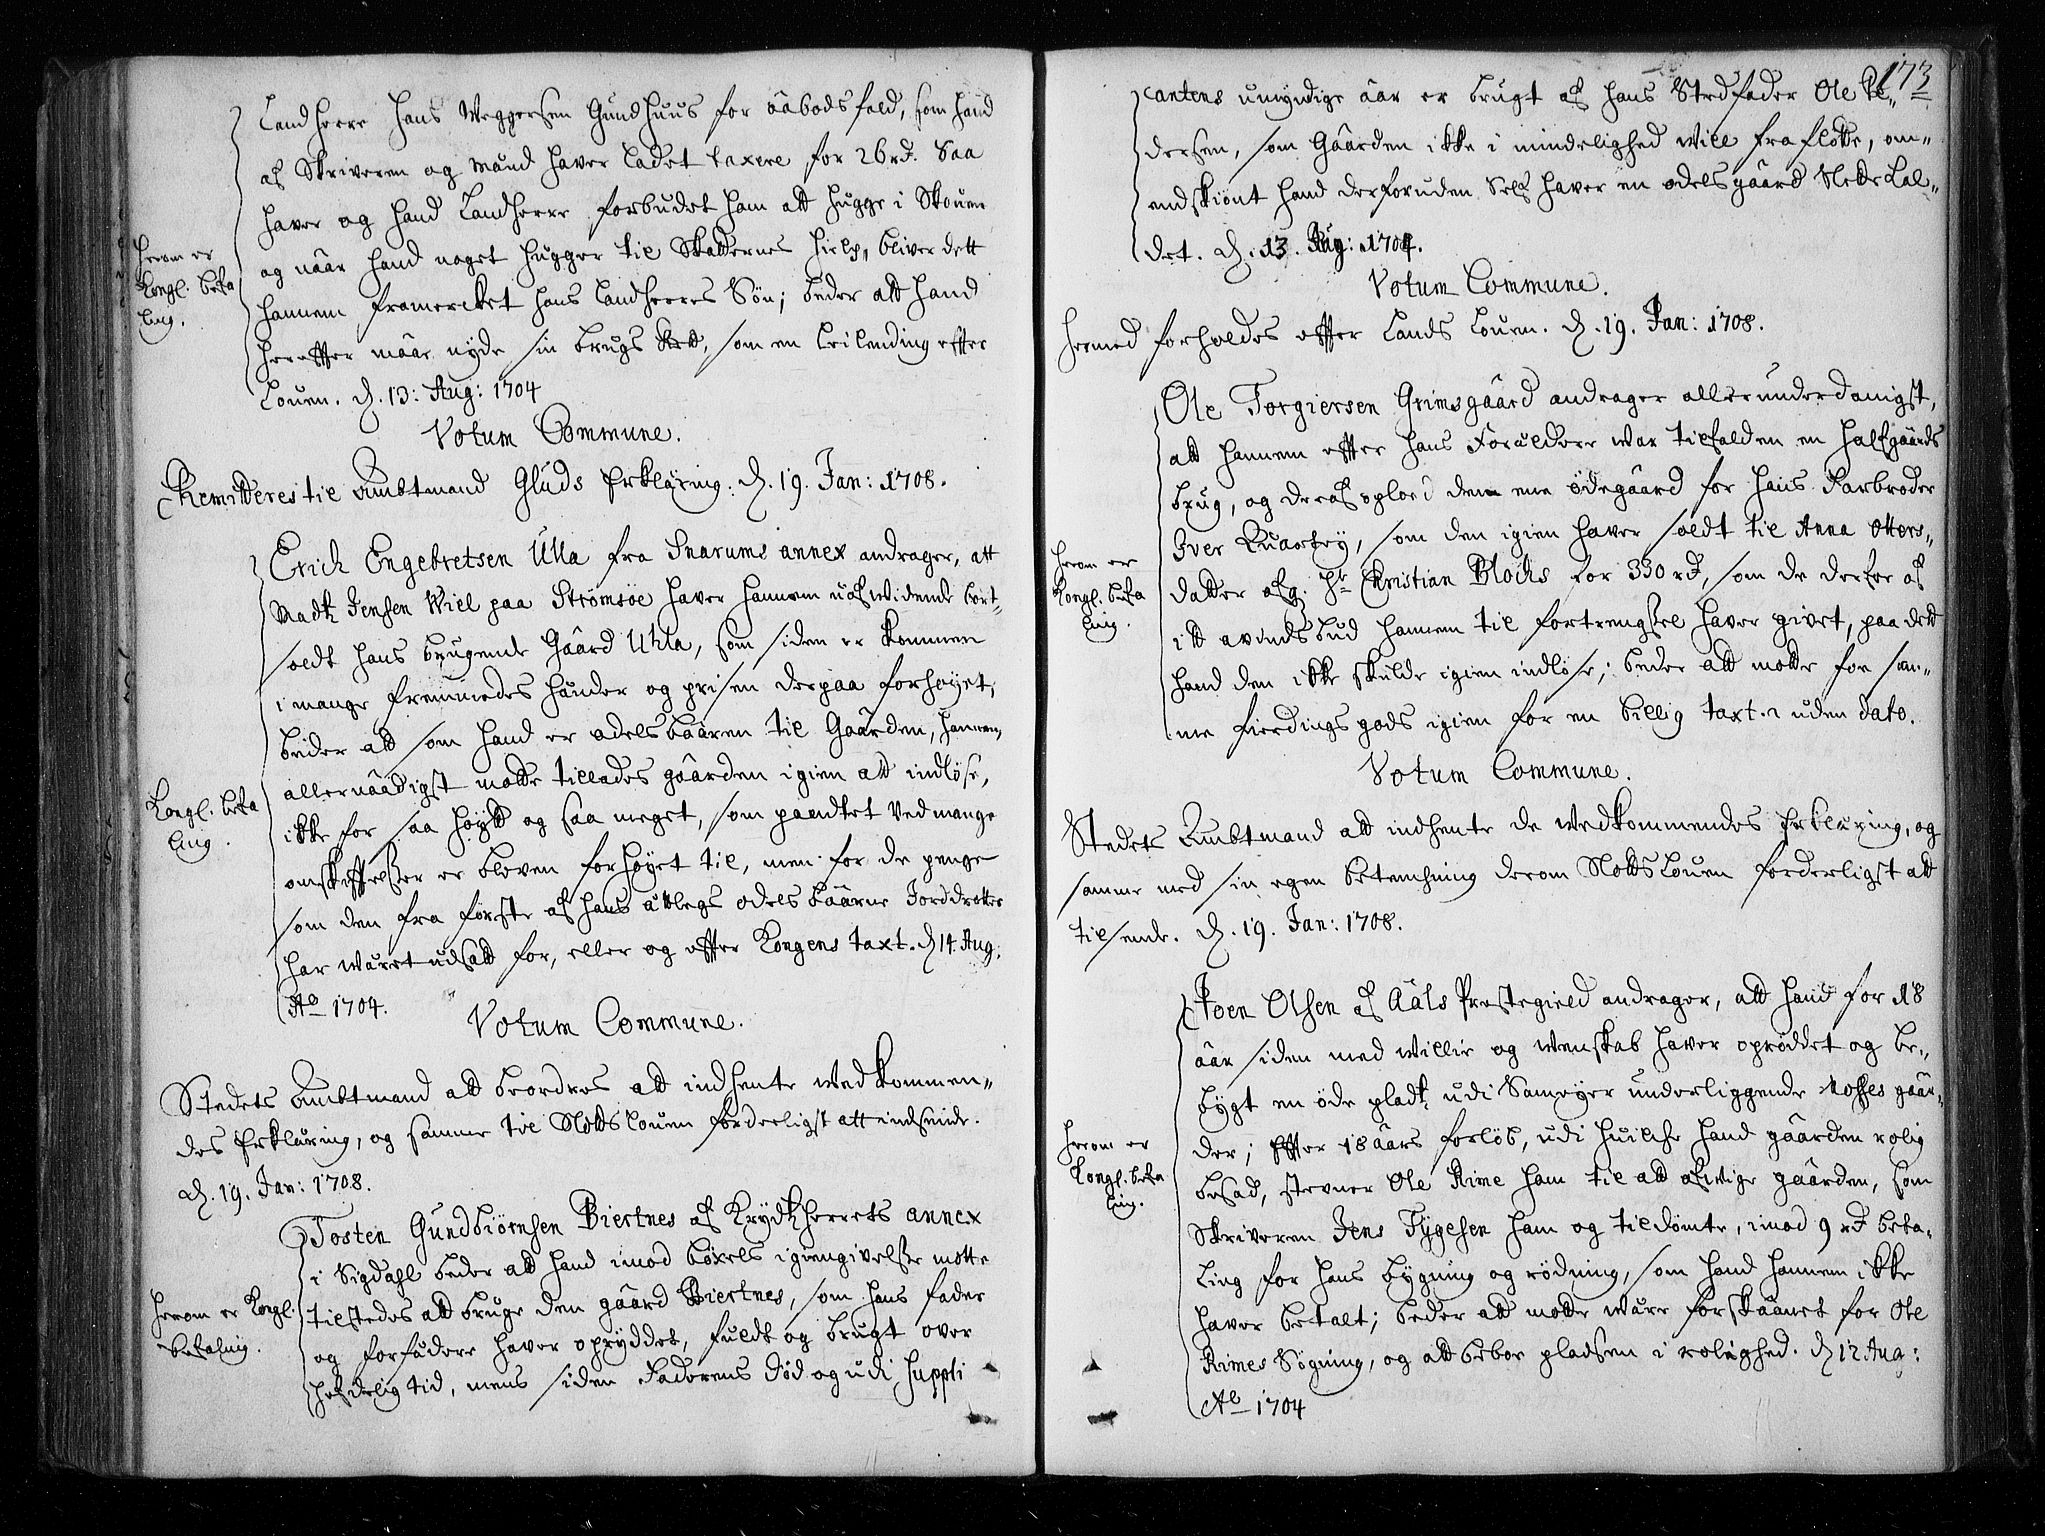 Landherre Hans Weggersen Gundhuus for aabods fald, som hand
af Skriveren og mænd haver ladet taxere for 26 rd. Saa
haver og hand Landherre forbudet ham att hugge i Skouen
og naar hand noget hugger til Skatternes hielp, bliver dett
hannem framercket hans Landherres Søn; beder att hand
herefter maae nyde sin brugs Rett, som en Leilending efter
Louen. d. 13: Aug: 1704
Herom er
Kongl. befa
ling.
Votum Commune.
Remitteres til Ambtmand Gluds Erklæring. d. 19. Jan: 1708.
Erich Engebretsen Ulla fra Snarums annex andrager, att
Madtz Jensen Wiel paa Strømsøe haver hannem uafvidende bort-
soldt hans brugende Gaard Uhla, som siden er kommen
i mange fremmedes hænder og prisen derpaa forhøyet;
beder att som hand er odelsbaaren til Gaarden, hannem
allernaadigst motte tillades gaarden igien att indløse,
ikke for saa høytt og saa meget, som pandtet ved mange
omskiftelsser er bleven forhøyet til, men for de penge
som den fra første af hans ætlegs odelsbaarne Jorddrotter
har wæret udsatt for, eller og efter Kongens taxt. d. 14. Aug:
Ao 1704.
Kongl. befa
ling.
Votum Commune.
Stedets Ambtmand att beordres att indhente wedkommen-
des Erklæring, og samme til Slotts Louen forderligst att indsende.
d. 19. Jan: 1708.
Tosten Gundbiørnsen Biertnes af Krydtzherrets annex
i Sigdahl beder att hand imod bøxels igiengivelse motte
tilstedes att bruge den gaard Biertnes, som hans fader
og forfædere haver opryddet, fuldt og brugt over
hefdelig tid, mens siden Faderens død og udi suppli
Herom er Kongl.
befaling.
173
cantens umyndige aar er brugt af hans Stedfader Ole Pe-
dersen, som Gaarden ikke i mindelighed will fra flötte, om-
endskiønt hand derforuden self haver en odelsgaard
det. d. 13. Aug: 1704.
Votum Commune.
Hermed forholdes efter Lands Louen. d. 19. Jan: 1708.
Ole Torgiersen Grimsgaard andrager allerunderdanigst,
att hannem efter hans Forældere war tilfalden en halfgaards
brug, og deraf oploed den ene ødegaard for hans Farbroder
Iver, som den igien haver soldt til Anna Otters-
datter afg. Hr Christian Blochs for 330 rd, som de derfor af
itt avinds bud hannem til fortrengssel haver givet, paa dett
hand den ikke skulde igien indløse; beder att motte for sam-
me fierdings gods igien for en billig taxt. uden dato.
Herom er
Kongl. befa
ling.
Votum Commune.
Stedets Ambtmand att indhente de wedkommendes Erklæring, og
samme med sin egen betenchning derom Slotts Louen forderligst att
tilsende. d. 19. Jan: 1708.
Joen Olsen af Aals Præstegield andrager, att hand for 18
aar siden med willie og wenskab haver oprøddet og be-
bygt en øde pladtz udi Sameyer underliggende Noffes gaar-
der; Efter 18 aars forløb, udi huilche hand gaarden rolig
besad, stevner Ole Rime ham til att afwige gaarden, som
Skriveren Jens Tygesen ham og tildømte, imod 9 rd beta-
ling for hans bygning og rödning, som hand hannem ikke
haver betalt; beder att motte wære forskaanet for Ole
Rimes Søgning, og att beboe pladsen i rolighed. d. 12 Aug:
Ao 1704
Herom er
Kongl. befa
ling.